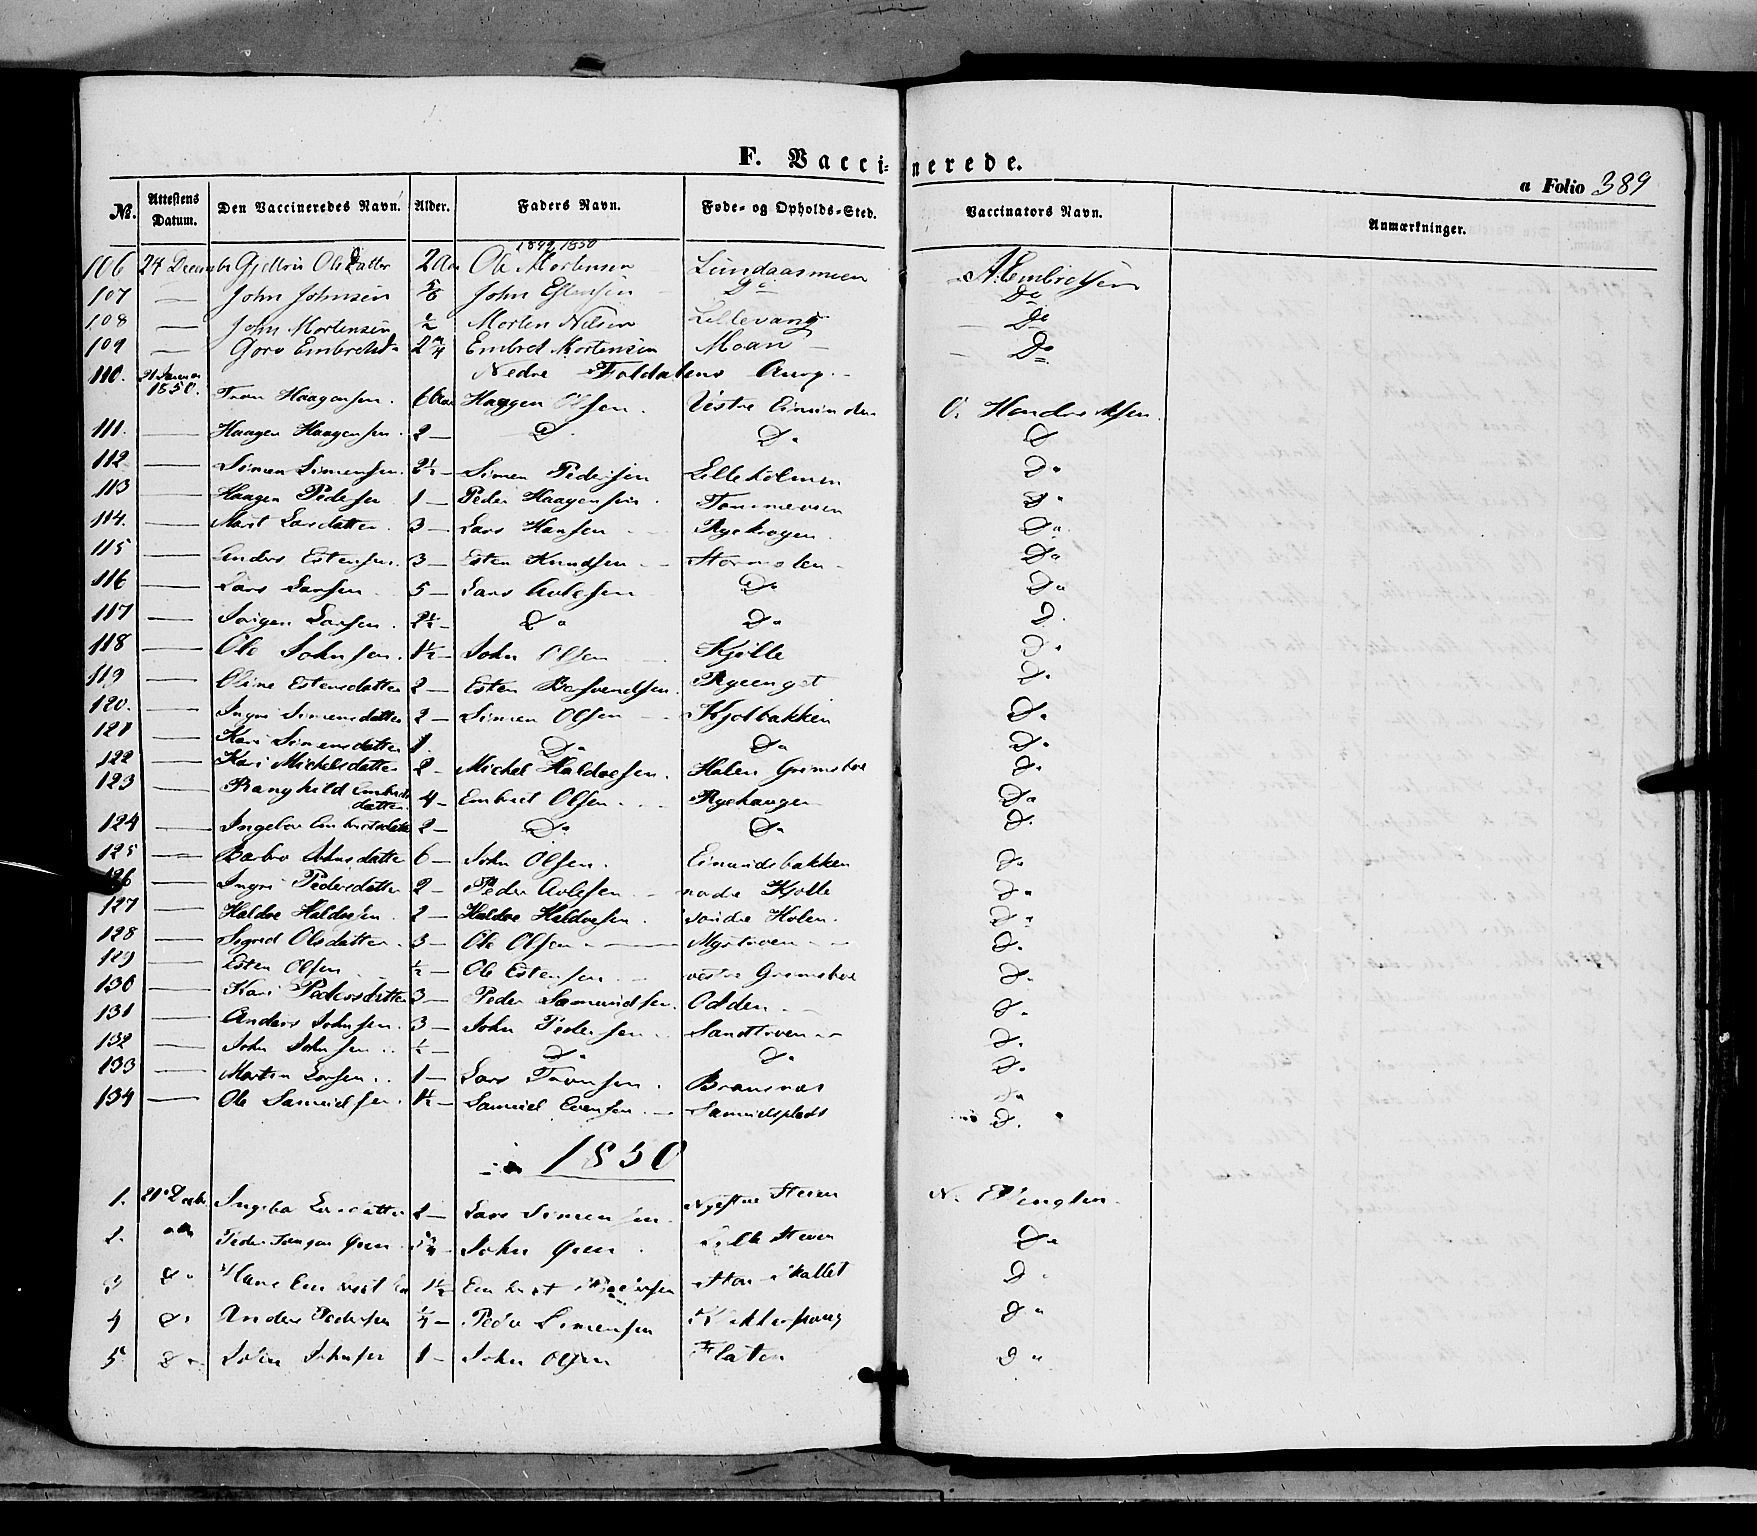 F. Vaccinerede.
a Folio 389
No. Attestens Datum. Den Vaccineredes Navn. Alder. Faders Navn. Føde- og Opholds-Sted. Vaccinators Navn. Anmærkninger.
1849, 1850
106 24 Decembr Olsdatter 2 Aar Ole Mortensen Lundaasmoen A. Embretsen
107 — John Johnsen 5/6 John Estensen Do Do
108 — John Mortensen ½ Morten Nilsen Lillevang — Do
109 — Goro Embretsd 2 ¾ Embret Mortensen Moan — Do
Nedre Foldalens
110. 21 Januar 1850. Tron Haagensen. 6 Aar Haagen Olsen. Vestre O. Hendriksen.
111. — Haagen Haagensen. 2 — Do. Do D
112 — Simen Simensen. 2½ — Simen Pedersen Lilleholmen Do
113 — Haagen Pedersen 1 — Peder Haagensen. Do
114. — Marit Larsdatter 3 — Lars Hansen Ryekrogen. Do
115 — Anders Estensen. 3 — Esten Knudsen — Stormolen Do
116 — Lars Larsen 5 — Lars Avlesen Do Do
117 — Jørgen Larsen. 2½ — Do Do D.
118 — Ole Johnsen. 1½ — John Olsen Kjølle D.
119 — Oline Estensdatter 2 — Esten Ryeenget D.
120. — Ingri Simensdatter 2 — Simen Olsen — Kjølbakken D.
121 — Kari Simensdatter 1. Do Do Do
122 — Kari Michelsdatter 2 — Michel Haldvesen. Holen Grimsboe D.
123 — Ranghild Embretsdatter 4 — Embret Olsen. Ryehaugen Do
124 — Ingebor Embretsdatter 2 — Do Do D.
125 — Barbro Johnsdatter 6 — John Olsen. Eimundsbakken Do
126 — Ingri Pedersdatter 2 — Peder Avlesen — nordre Kjølle Do
127 — Haldve Haldvesen. 2 — Haldve Haldvesen. søndre Holen. D.
128 — Sigrid Olsdatter. 3 — Ole Olsen — Myrtroen D.
129 — Esten Olsen ½ — Ole Estensen vestre Grimsboe D.
130 — Kari Pedersdatter 3 — Peder Samuelsen. Odden D.
131 — Anders Johnsen. 3 — John Pedersen Sandtroen D.
132 — John Johnsen ½ — Do Do D.
133 — Morten Larsen. 1 — Lars Tronsen. Bransnæs Do
134 — Ole Samuelsen. 1½ — Samuel Evensen. — Samuelsplads D.
1850
1. 21 Decbr Ingebor Larsdatter 2 — Lars Simensen. Steien N.
2. Peder Grue John Grue. Lille Steien Do
3 Do 1½ Embret D.
4 Do Anders Pedersen ¼ — Peder Simensen Do
5 Do John Johnsen 1 — John Olsen Flaten Do